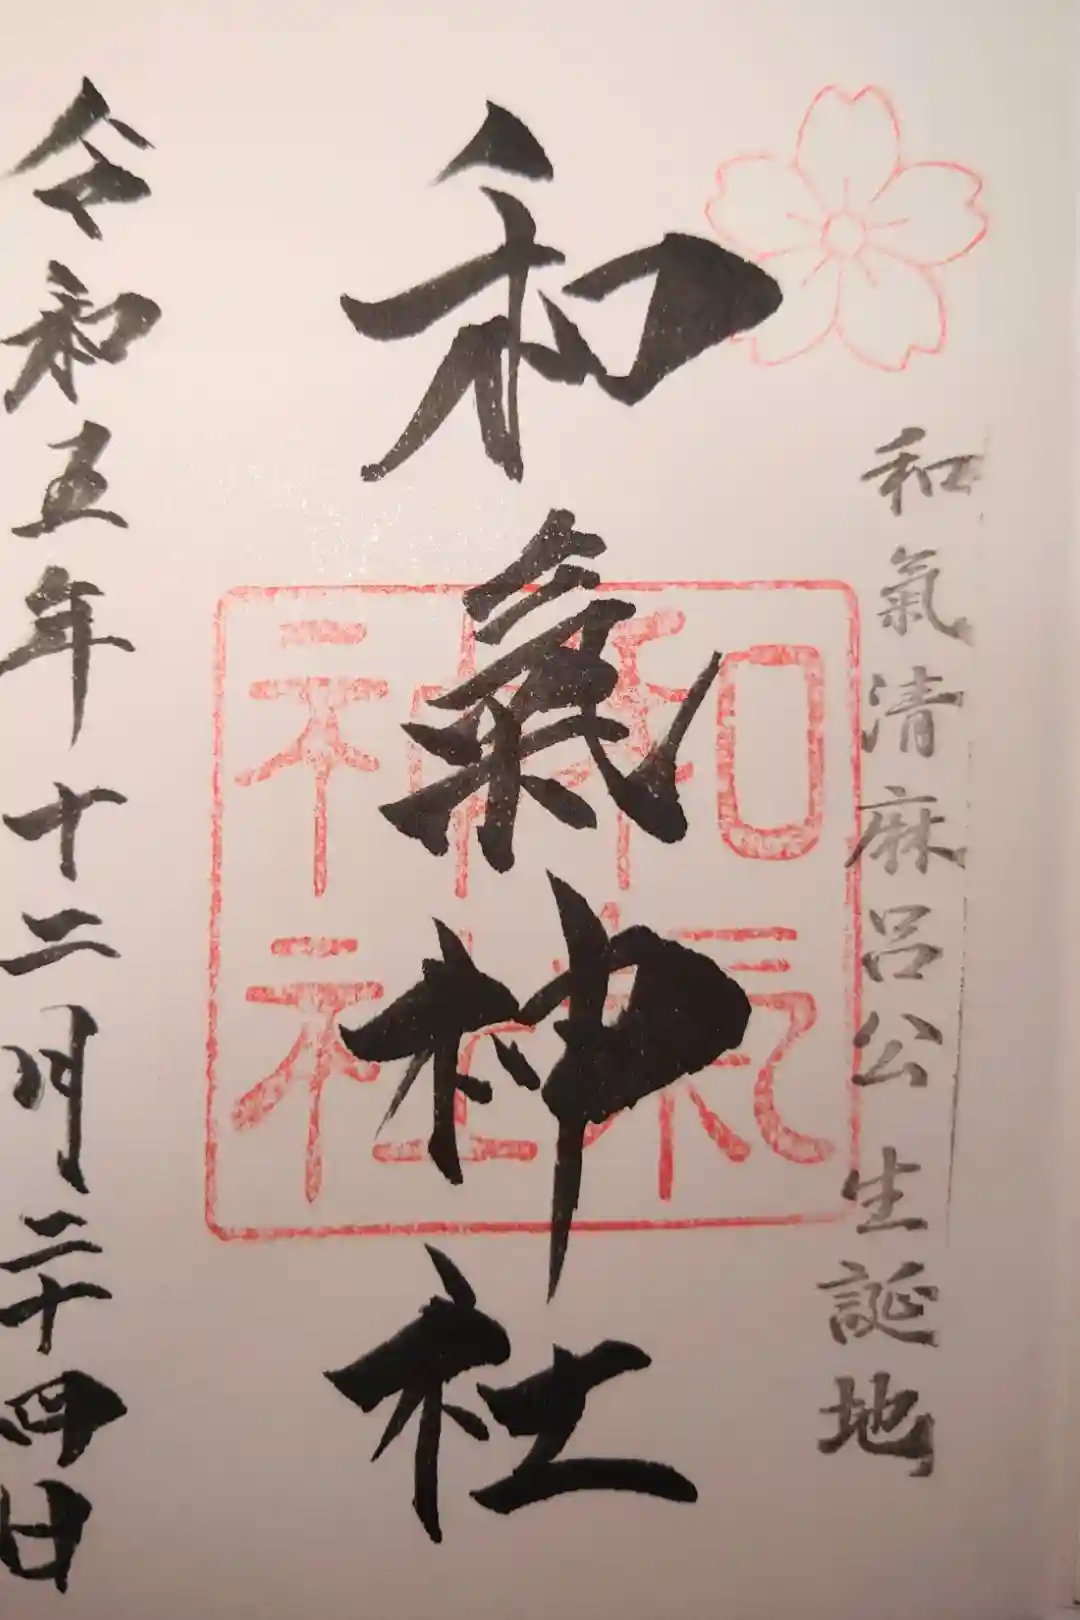 和氣清麻呂公 生誕地
和氣神社
和氣
神社
令和五年十二月二十四日